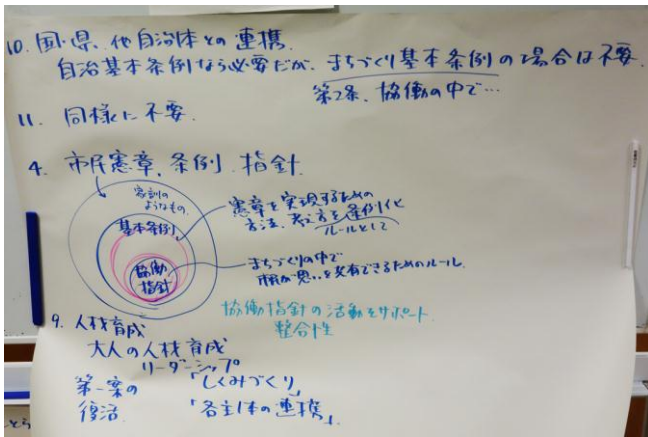 10. 国・県、他自治体との連携.
自治基本条例なら必要だが、まちづくり基本条例の場合は不要.
第2条、協働の中で…
11. 同様に不要.
4. 市民憲章、条例、指針
家訓の
ようなもの.
基本条例
協働
指針
憲章を実現するための
方法、考え方を条例化
ルールとして
まちづくりの中で
市民が思いを共有できるためのルール.
協働指針の活動をサポート.
整合性
9. 人材育成
大人の人材育成
リーダーシップ
第一案の
復活
「しくみづくり」
「各主体の連携」